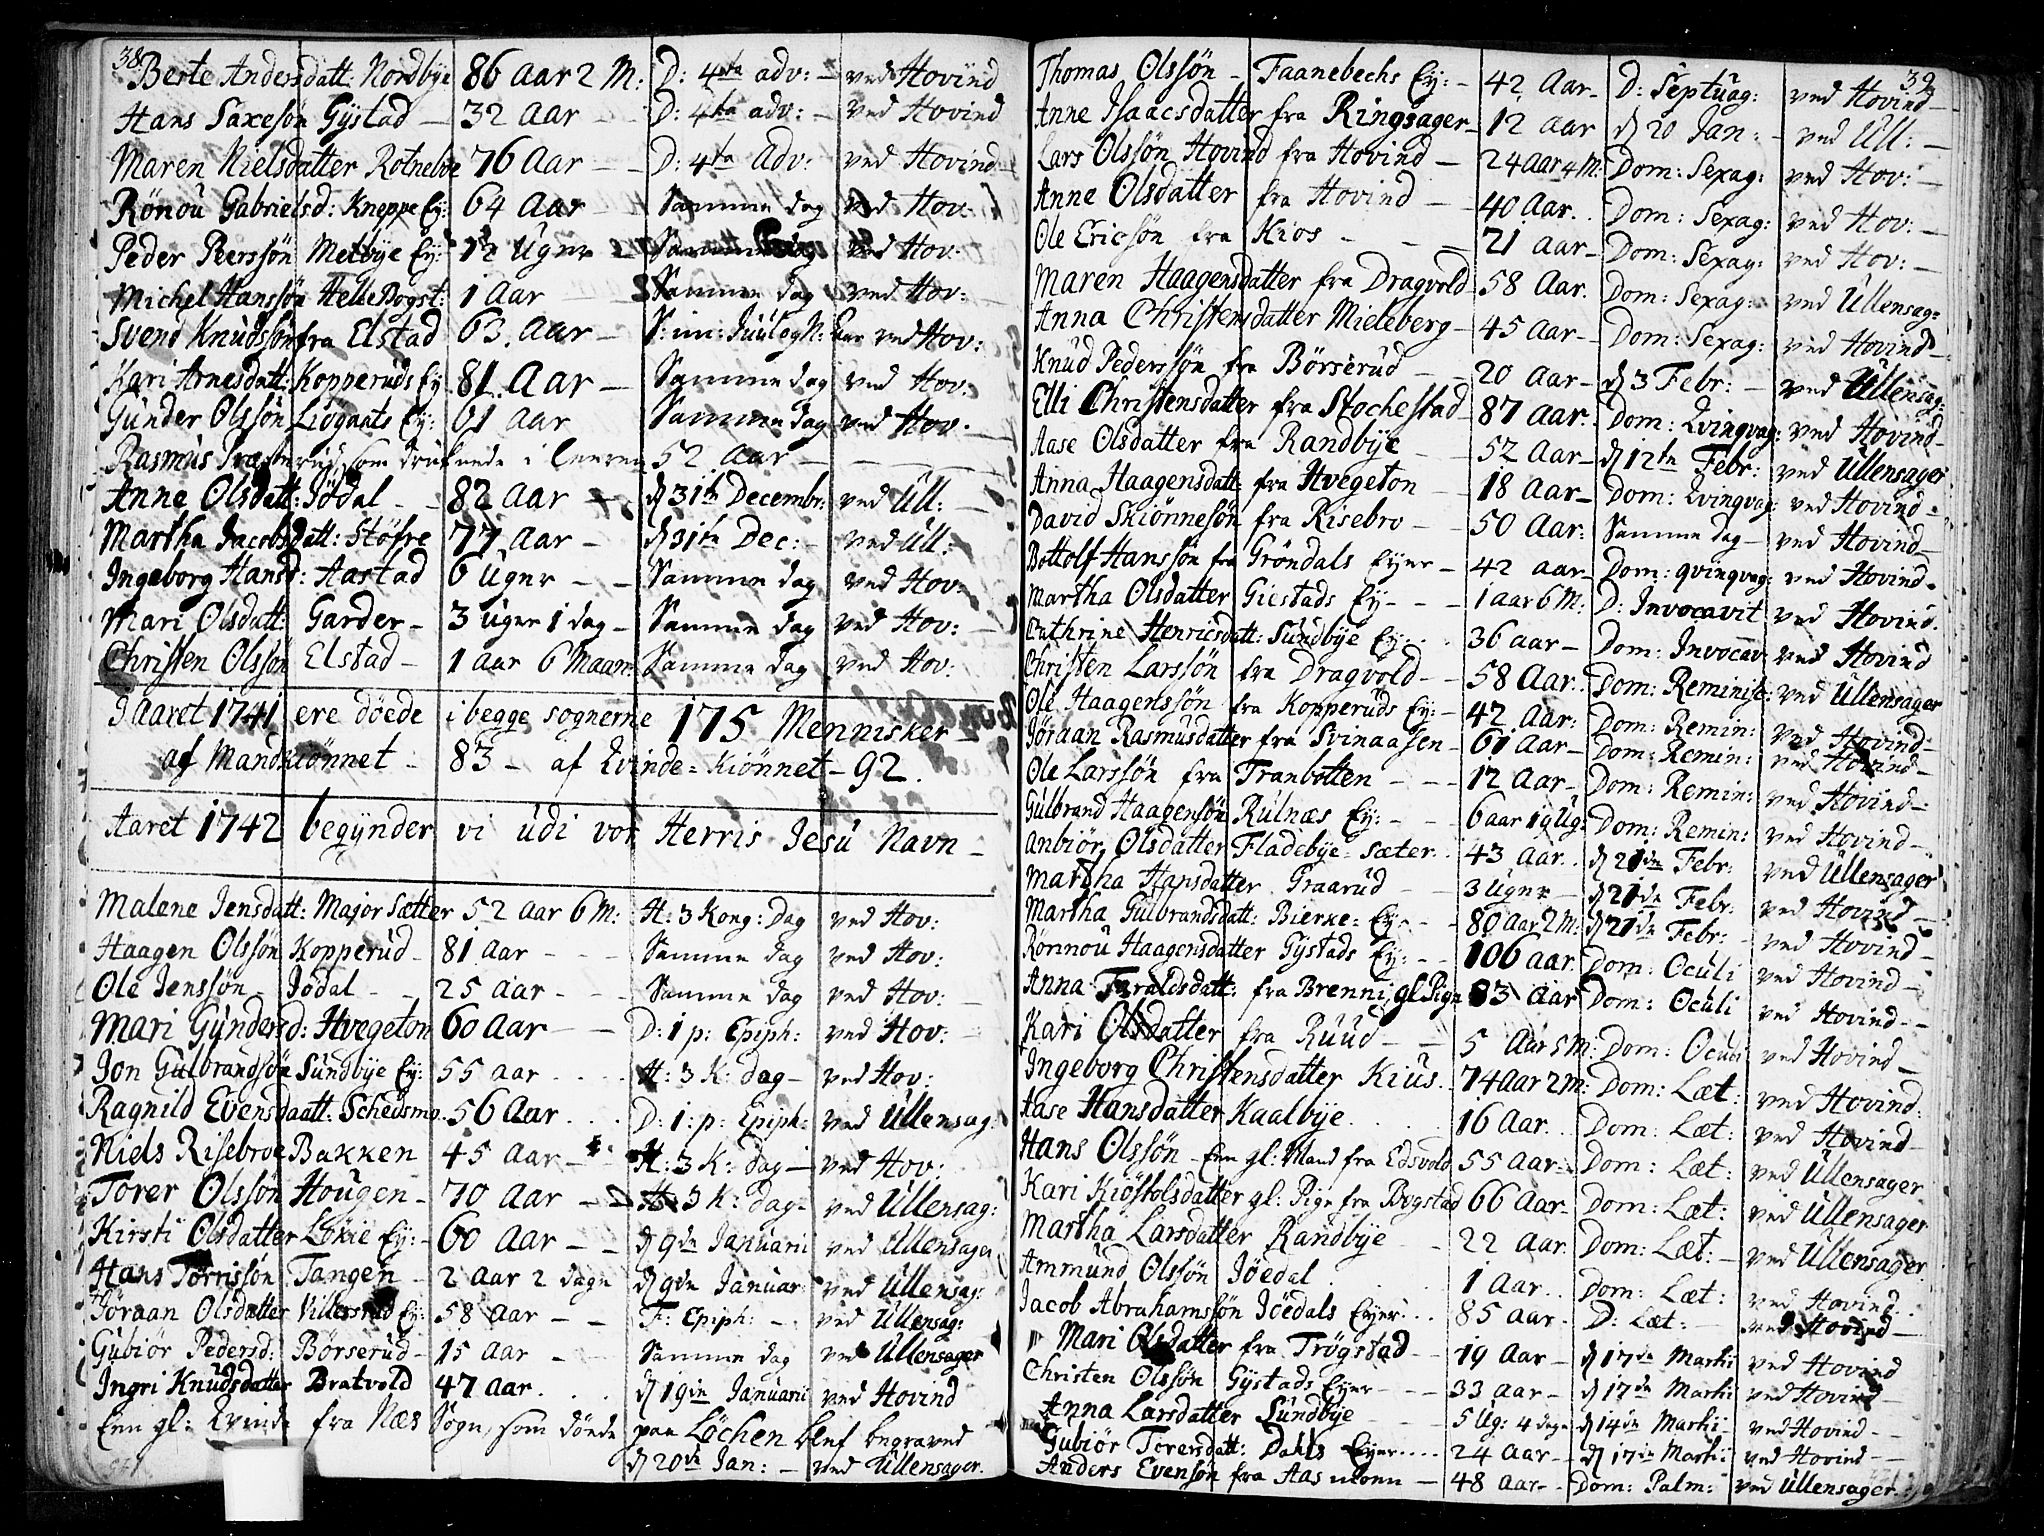 38
Berte Andersdatt: Nordbÿe 86 Aar 2 M: D: 4ta adv: – ved Hovind
Hans Saxesøn Gÿstad – 32 Aar – D: 4ta adv: – ved Hovind
Maren Nielsdatter Rotneboe 76 Aar – D: 4ta Adv: ved Hovind –
Rönou Gabrielsd: Kneppe Eÿ: 64 Aar – Samme dag ved Hov:
Peder Peerssøn Melbÿe Eÿ: 12 Uger – Samme dag ved Hov:
Michel Hanssøn Helle Bogst: 1 Aar – Samme dag ved Hov:
Svend Knudsøn fra Elstad 63. Aar – S: im: Juul og N: Aar ved Hov:
Kari Arnesdatt: Kopperuds Eÿ 81. Aar – Samme dag ved Hov:
Gunder Olssøn Liögaats Eÿ: 61 Aar Samme dag ved Hov: –
Rasmus som druknede i Leeren 52 Aar –
Anne Olsdatt: Jödal – 82 Aar – d 31te Decembr: ved Ull: –
Martha Jacobsdatt: Stöfre 77 Aar – d 31te Dec: – ved Ull:
Ingeborg Hansd: Aastad 6 Uger – – Samme dag ved Hov:
Mari Olsdatt: Garder – 3 Uger 1 dag – Samme dag ved Hov: –
Christen Olssøn Elstad – 1 Aar 6 Maan: Samme dag ved Hov:
I Aaret 1741 ere döede i begge sognerne 175 Mennisker –
af Mandkiönnet – 83 – af Qvinde = Kiönnet – 92.
Aaret 1742 begÿnder vi udi vor Herris Jesu Navn –
Malene Jensdatt: Major Sætter 52 Aar 6 M: H: 3 Kong: Dag ved Hov:
Haagen Olssøn Kopperud – 81 Aar – – – Samme dag ved Hov:
Ole Jenssøn – Jödal – – 25 Aar – – – Samme dag ved Hov: –
Mari Gÿndersd: Hvegeton 60 Aar – – D: 1 p: Epiph: ved Hov: –
Jon Gulbrandsøn Sundbÿe Eÿ: 55 aar .... H: 3 K: dag – ved Hov:
Ragnild Evensdaatt: Schedsmo. 56 Aar ... D: 1: p: Epiph: ved Ullensag:
Niels Risebroe Bakken 45 Aar – H: 3 K: dag – ved Hov:
Torer Olssøn Hougen – 70 Aar – H 3 K: dag – ved Ullensag:
Kirsti Olsdatter Lökie Eÿ: – 60 Aar – – d 9de Januarii ved Ullensager
Hans Torrissøn Tangen – 2 Aar 2 dage d 9de Januar: ved Ullensag:
Jöraan Olsdatter Villersrud Eÿ: 58 Aar – – F: Epiph: – ved Ullensag:
Gubiör Pedersd: Börserud – 15 Aar – Samme dag ved Ullensager
Ingri Knudsdatter Bratvold 47 Aar .... d 19de Januarii ved Hovind
Een gl: Qvinde fra Næs Sogn, som döede paa Löchen blef begraved
d 20de Jan: – ved Ullensager.
39
Thomas Olssøn – Faanebechs Eÿ: – 42 Aar – D: Septuag: ved Hovind –
Anne Isaacsdatter fra Ringsager – 12 Aar d 20 Jan: – ved Ull: –
Lars Olssøn Hovind fra Hovind – 24 Aar 4 M: Dom: Sexag: ved Hov: –
Anne Olsdatter fra Hovind – – 40 Aar.. Dom: Sexag: ved Hov: –
Ole Ericsøn fra Kios – – – 21 Aar – Dom: Sexag: ved Hov: –
Maren Haagensdatter fra Dragvold 58 Aar. Dom: Sexag: ved Ullensag:
Anna Christensdatter Mieleberg – 45 Aar – Dom: Sexag: ved Hovind –
Knud Pederssøn fra Börserud – – 20 Aar – d 3 Febr: – ved Ullensag:
Elli Christensdatter fra Stochestad – 87 Aar. Dom: Qvinqvag: ved Hovind –
Aase Olsdatter fra Randbÿe – 52 Aar – d 12te Febr: ved Ullensager
Anna Haagensdatt: fra Hvegeton – 18 Aar – Dom: Qvinqvag: ved Hovind –
David Skiönnesøn fra Risebro – – 50 Aar: Samme dag – ved Hovind –
Bottolf Hanssøn fra Gröndals Eÿer – 42 Aar – Dom: qvinqvag: ved Hovind –
Martha Olsdatter Giestads Eÿ – – – 1 aar 6 M: D: Invocavit ved Hovind.
Cathrine Henricsdatt: Sundbÿe Eÿ: .. 36 aar – Dom: Invocav: ved Hovind
Christen Larssøn fra Dragvold – – 58 Aar.. Dom: Reminisc: ved Ullensager
Ole Haagenssøn fra Kopperuds Eÿ: – 42 Aar: Dom: Remin: ved Hovind –
Jöraan Rasmusdatter fra Svinaasen – 61 Aar – Dom: Remin: ved Hovind –
Ole Larssøn fra Tranbotten – – – 12 Aar – Dom: Remin: ved Hovind –
Gulbrand Haagensøn Rulnæs Eÿ: – – 6 aar 19 Ug: Dom: Remin: ved Hovind –
Anbiör Olsdatter Fladebÿe = Sæter.. 43 Aar.. d 21de Febr: ved Ullensager
Martha Hansdatter Graarud – – 3 Uger – d 21de Febr: ved Hovind –
Martha Gulbrandsdatt: Bierke = Eÿ: – – 80 Aar 2 M: d 21de Febr: – ved Hovind –
Rönnou Haagensdatter Gÿstads Eÿ: – – 106 aar. Dom: Oculi ved Hovind –
Anna Taraldsdatt: fra Brenni, gl. Pige 83 Aar Dom: Oculi ved Hovind – –
Kari Olsdatter fra Ruud – – 5 Aar 5 M: Dom: Oculi ved Hovind –
Ingeborg Christensdatter Kius.. 74 Aar 2 M: Dom: Læt: ved Hovind:
Aase Hansdatter Kaalbÿe ..... 16 Aar.. Dom: Læt: ved Hovind –
Hans Olssøn – Een gl: Mand fra Edsvold 55 Aar – Dom: Læt: ved Ullensager.
Kari Kiöstolsdatter gl: Pige fra Bogstad 66 Aar – Dom: Læt: ved Ullensager
Martha Larsdatter Randbÿe – 22 Aar. Dom: Læt: – ved Ullensager.
Ammund Olssøn Jöedal .... 1 Aar.. Dom: Læt: ved Hovind..
Jacob Abrahamssøn Jöedals Eÿer: .. 85 aar – D: Læt: – ved Hovind –
Mari Olsdatter fra Trögstad – – 19 Aar – d 17de Martii ved Hovind
Christen Olssøn Gÿstads Eÿer – – – 33 Aar – d 17de Martii ved Hovind –
Anna Larsdatter Sundbÿe – – 5 Ug: 4 dage d 14de Martii ved Hovind – –
Gubiör Torersdatt: Dahls Eÿer.... 24 Aar – d 17de Martii ved Hovind – –
Anders Evensøn fra Aasmoen – 48 Aar – Dom: Palm: ved Ullensager.